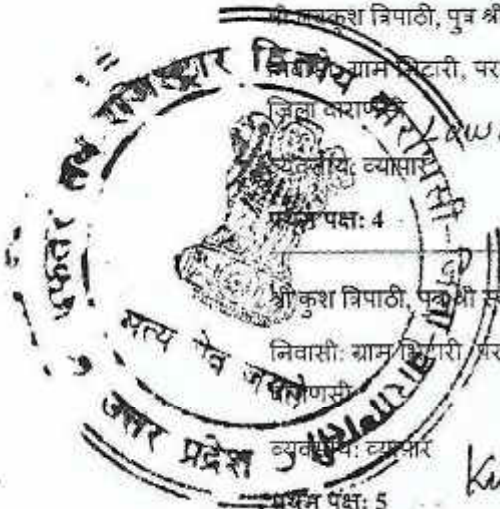 श्री लवकुश त्रिपाठी, पुत्र श्री
निवासी: ग्राम भिटारी, पर
जिला वाराणसी
व्यवसाय: व्यापार
प्रथम पक्ष: 4
श्री कुश त्रिपाठी, पुत्र श्री स
निवासी: ग्राम भिटारी, पर
वाराणसी
व्यवसाय: व्यापार
प्रथम पक्ष: 5
दफ्तर सब रजिस्ट्रार द्वितीय वाराणसी
सत्यमेव जयते
उत्तर प्रदेश